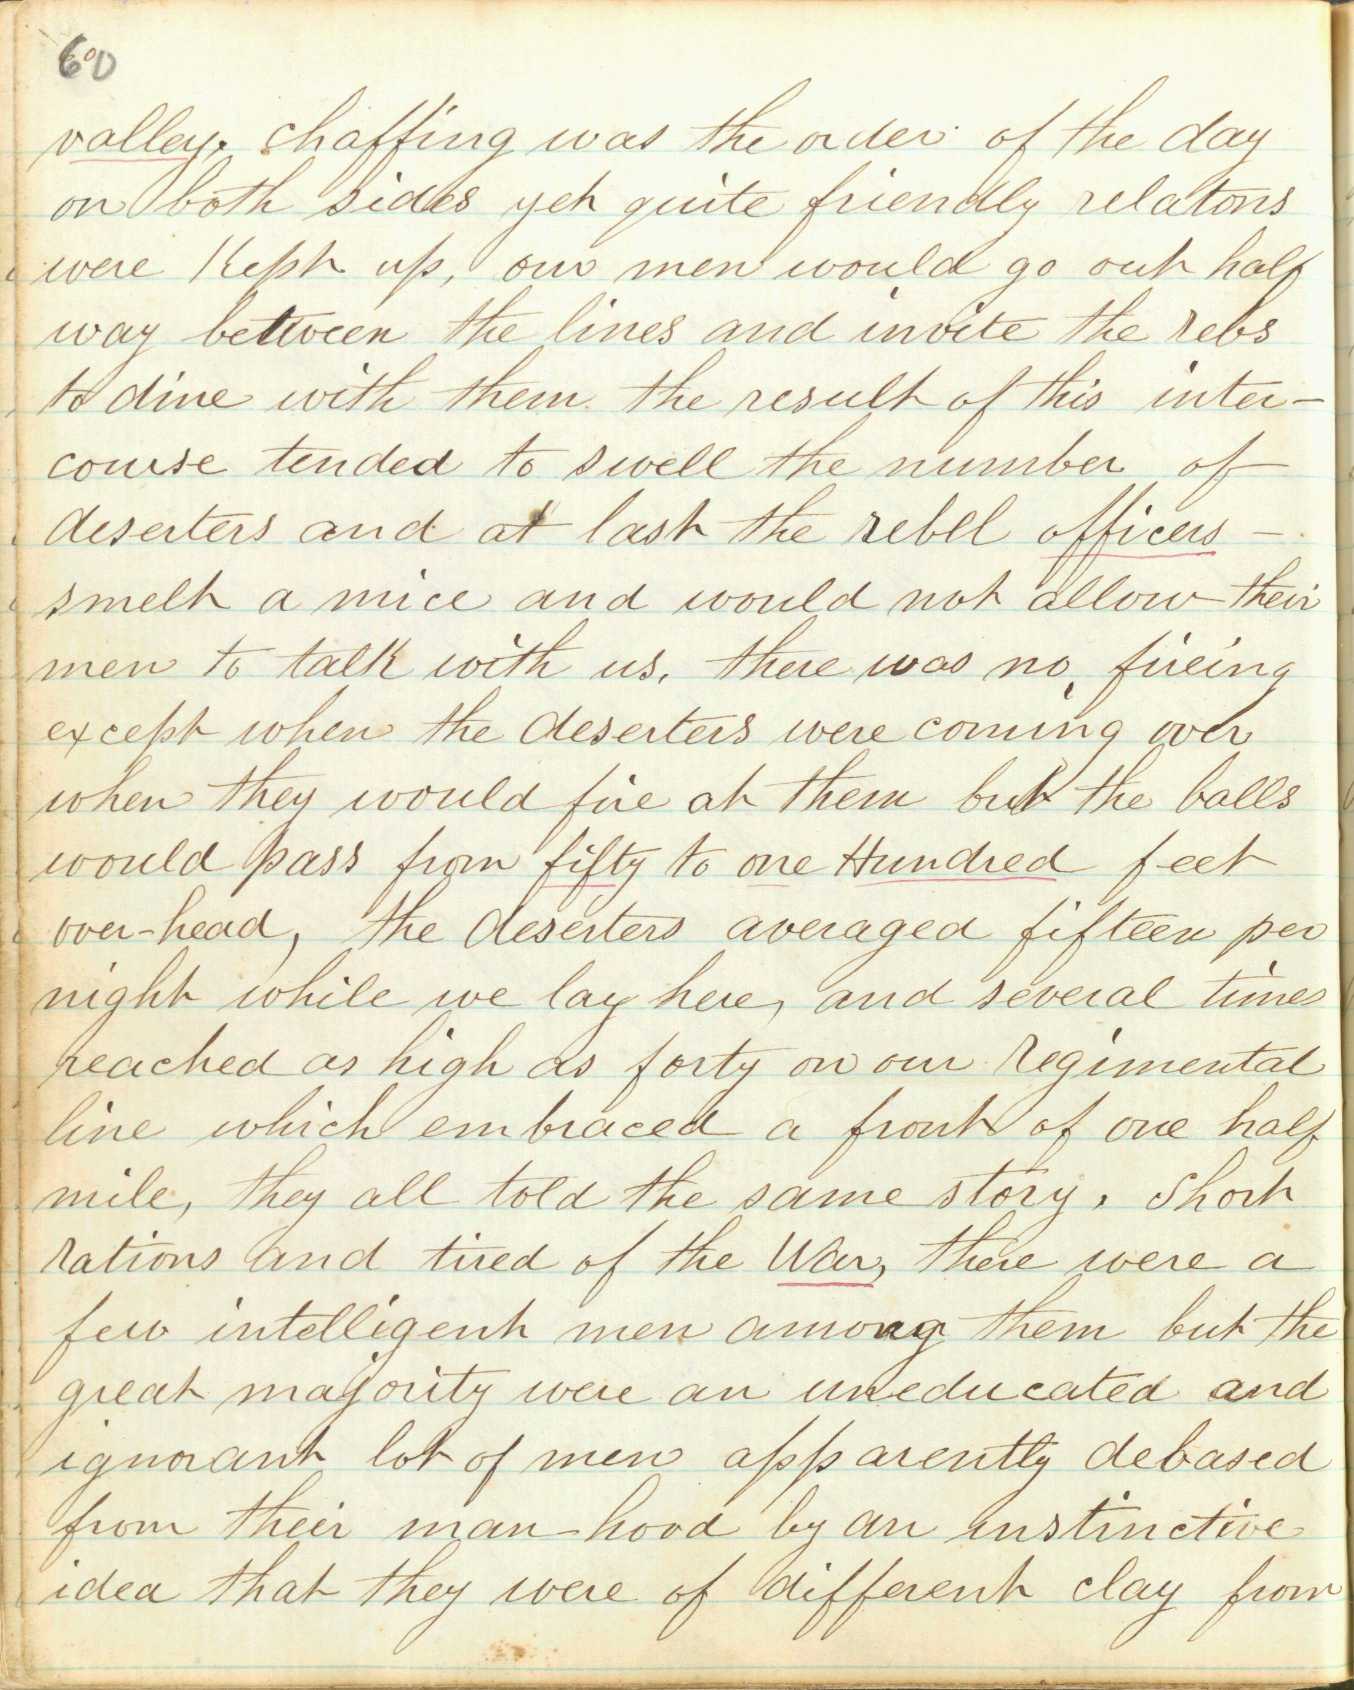 60
valley. chaffing was the order of the day
on both sides yet quite friendly relatons
were Kept up, our men would go out half
way between the lines and invite the rebs
to dine with them. the result of this inter-
course tended to swell the number of
deserters and at last the rebel officers -
smelt a mice and would not allow their
men to talk with us. there was no fireing
except when the deserters were coming over
when they would fire at them but the balls
would pass from fifty to one Hundred feet
over-head, the deserters averaged fifteen per
night while we lay here, and several times
reached as high as forty on our regimental
line which embraced a front of one half
mile, they all told the same story. Short
rations and tired of the War, there were a
few intelligent men among them but the
great majority were an uneducated and
ignorant lot of men apparently debased
from their man-hood by an instinctive
idea that they were of different clay from